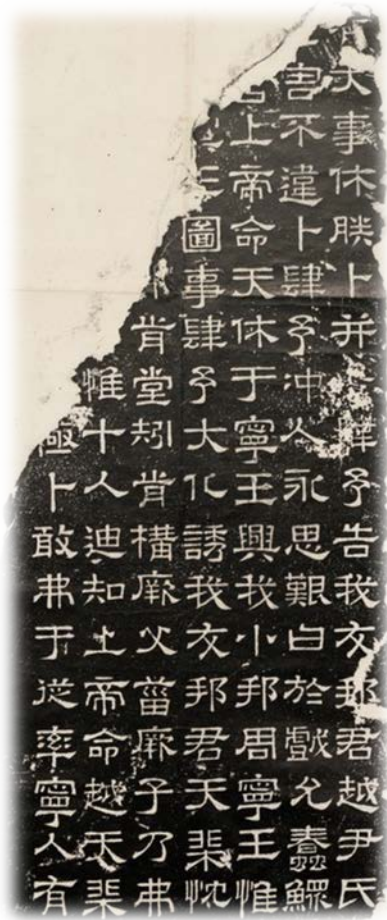 大事休朕卜并肆予告我友邦君越尹氏
害不違卜肆予沖人永思艱曰於戲允蠢鰥
上帝命天休于寧王興我小邦周寧王惟
圖事肆予大化誘我友邦君天棐忱
肯堂矧肯構厥父菑厥子乃弗
惟十人迪知上帝命越天棐
極卜敢弗于從率寧人有